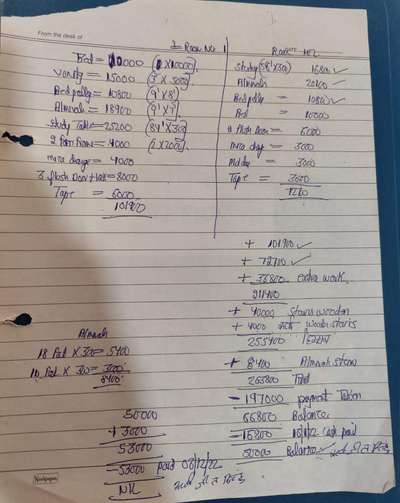 From the desk of
Room No 1
Bed = 10000 (1 x 10000)
Vanity = 15000 (3' x 5000)
Bed polly = 10800 (9' x 8')
Almirah = 18900 (9' x 7')
Study Table = 25200 (84' x 300)
2 Fam Room = 4000 (2 x 2000)
mera charge = 4000
3 flush Door + = 8000
Tape = 6000
101900
Room
Study (56' x 300) 16800 ✓
Almirah 20100 ✓
Bed polly = 10800 ✓
Bed = 10000
2 flush Door = 6000
mera charg = 3000
= 3000
Tape = 3000
72700
+ 101900 ✓
+ 72700 ✓
+ 36800 extra work
211400
+ 40000 Stairs wooden
+ 4000 stairs
255400
+ 8400 Almirah
263800 Total
- 197000 payment Taken
66800 Balance
- 16800 cash paid
50000 Balance ✓
Almirah
18 Pad x 300 = 5400
10 Pad x 300 = 3000
8400
50000
+ 3000
53000
- 53000 paid 08/12/22
Nil
Neelgagan